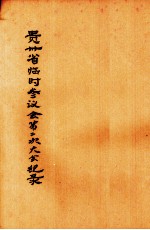 贵州省临时参议会第二次大会纪录